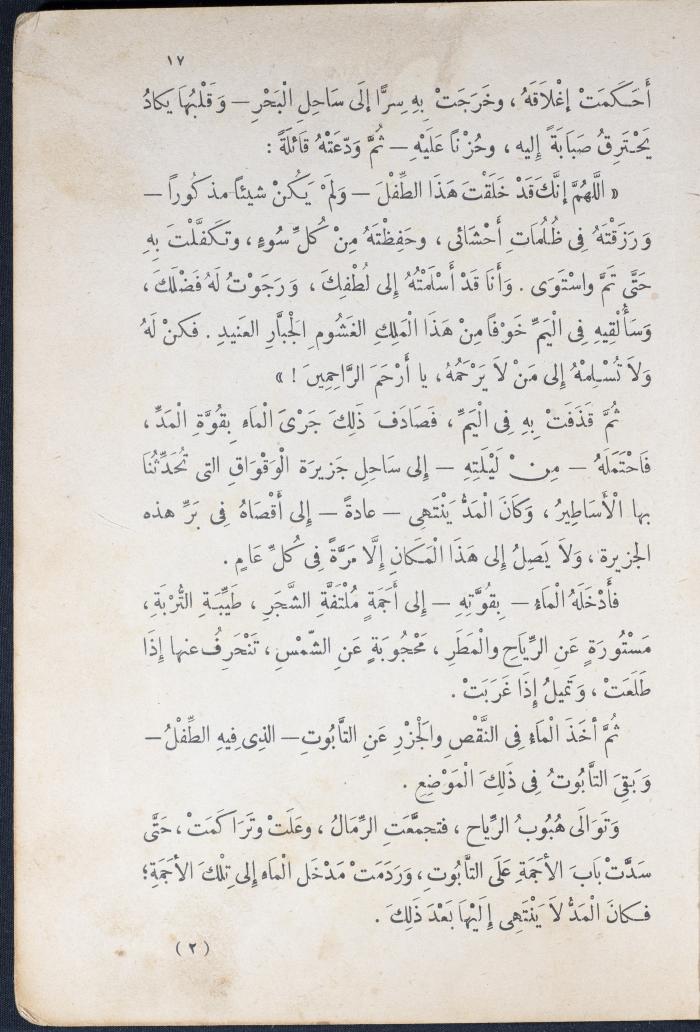 ١٧
أَحْكَمَتْ إِغْلَاقَهُ ، وخَرَجَتْ بِهِ سِرًّا إلَى سَاحِلِ الْبَحْرِ — وَقَلْبُهَا يكادُ
يَحْتَرِقُ صَبَابَةً إليه ، وحُزْناً عَلَيْهِ — ثُمَّ وَدَّعَتْهُ قَائلَةً :
« اللَّهُمَّ إنَّكَ قَدْ خَلَقْتَ هَذَا الطِّفْلَ — وَلَمْ يَكُنْ شيئاً مذكُوراً —
وَرَزَقْتَهُ فِى ظُلُمَاتِ أَحْشَائى ، وحَفِظْتَهُ مِنْ كُلِّ سُوءٍ ، وتَكَفَّلْتَ بِهِ
حَتَّى تَمَّ واسْتَوَى . وَأَنَا قَدْ أَسْلَمْتُهُ إلى لُطْفِكَ ، وَرَجَوْتُ لَهُ فَضْلَكَ ،
وَسَأُلْقِيهِ فِى الْيَمِّ خَوْفًا مِنْ هَذَا الْمَلِكِ الغَشُومِ الْجَبَّارِ العَنيدِ . فكنْ لَهُ
وَلاَ تُسْلِمْهُ إلى مَنْ لاَ يَرْحَمُهُ ، يا أَرْحَمَ الرَّاحِمِينَ ! »
ثُمَّ قَذَفَتْ بِهِ فِى الْيَمِّ ، فَصَادَفَ ذَلِكَ جَرْىَ الْمَاءِ بِقُوَّةِ الْمَدِّ ،
فَاحْتَمَلَهُ — مِنْ لَيْلَتِهِ — إلى سَاحلِ جَزِيرَةِ الْوَقْوَاقِ التى تُحَدِّثُنَا
بها الْأَسَاطِيرُ ، وَكَانَ الْمَدُّ يَنْتَهِى — عادةً — إلى أَقْصَاهُ فِى بَرِّ هذه
الجزيرة ، وَلاَ يَصِلُ إلى هَذَا الْمَكَانِ إلَّا مَرَّةً فِى كُلِّ عَامٍ .
فأَدْخَلَهُ الْمَاءُ — بِقُوَّتِهِ — إلى أَجَمَةٍ مُلْتَفَّةِ الشَّجَرِ ، طَيِّبَةِ التُّرْبَةِ ،
مَسْتُورَةٍ عَنِ الرِّيَاحِ والْمَطَرِ ، مَحْجُوبَةٍ عَنِ الشَّمْسِ ، تَنْحَرِفُ عنها إذَا
طَلَعَتْ ، وَتَمِيلُ إذَا غَرَبَتْ .
ثُمَّ أخَذَ الْمَاءُ فِى النَّقْصِ والْجَزْرِ عَنِ التَّابُوتِ — الذِى فِيهِ الطِّفْلُ —
وَبَقِىَ التَّابُوتُ فِى ذَلِكَ الْمَوْضِعِ .
وَتَوَالَى هُبُوبُ الرِّياحِ ، فتجمَّعَتِ الرِّمَالُ ، وعَلَتْ وتَرَاكَمَتْ ، حَتَّى
سَدَّتْ بَابَ الأَجَمَةِ عَلَى التَّابُوتِ ، وَرَدَمَتْ مَدْخَلَ الْمَاءِ إلى تِلْكَ الأَجَمَةِ ؛
فكانَ الْمَدُّ لاَ يَنْتَهِى إلَيْهَا بَعْدَ ذَلِكَ .
( ٢ )